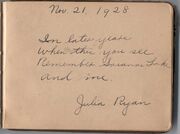 Nov. 21, 1928
In later years
When this you see
Remember Saranac Lake
And me
Julia Ryan